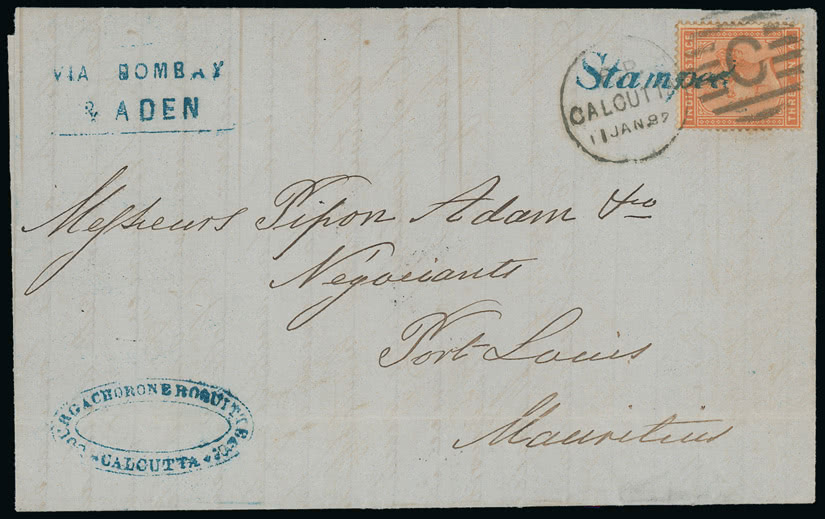 VIA BOMBAY
& ADEN
Stamped
CALCUTTA
11 JAN. 87
C
INDIA POSTAGE
THREE
Messieurs Pipon Adam & Co
Négociants
Port Louis
Mauritius
CALCUTTA